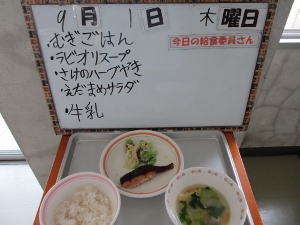 9月1日 木曜日
今日の給食委員さん
むぎごはん
・ラビオリスープ
・さけのハーブやき
・えだまめサラダ
・牛乳